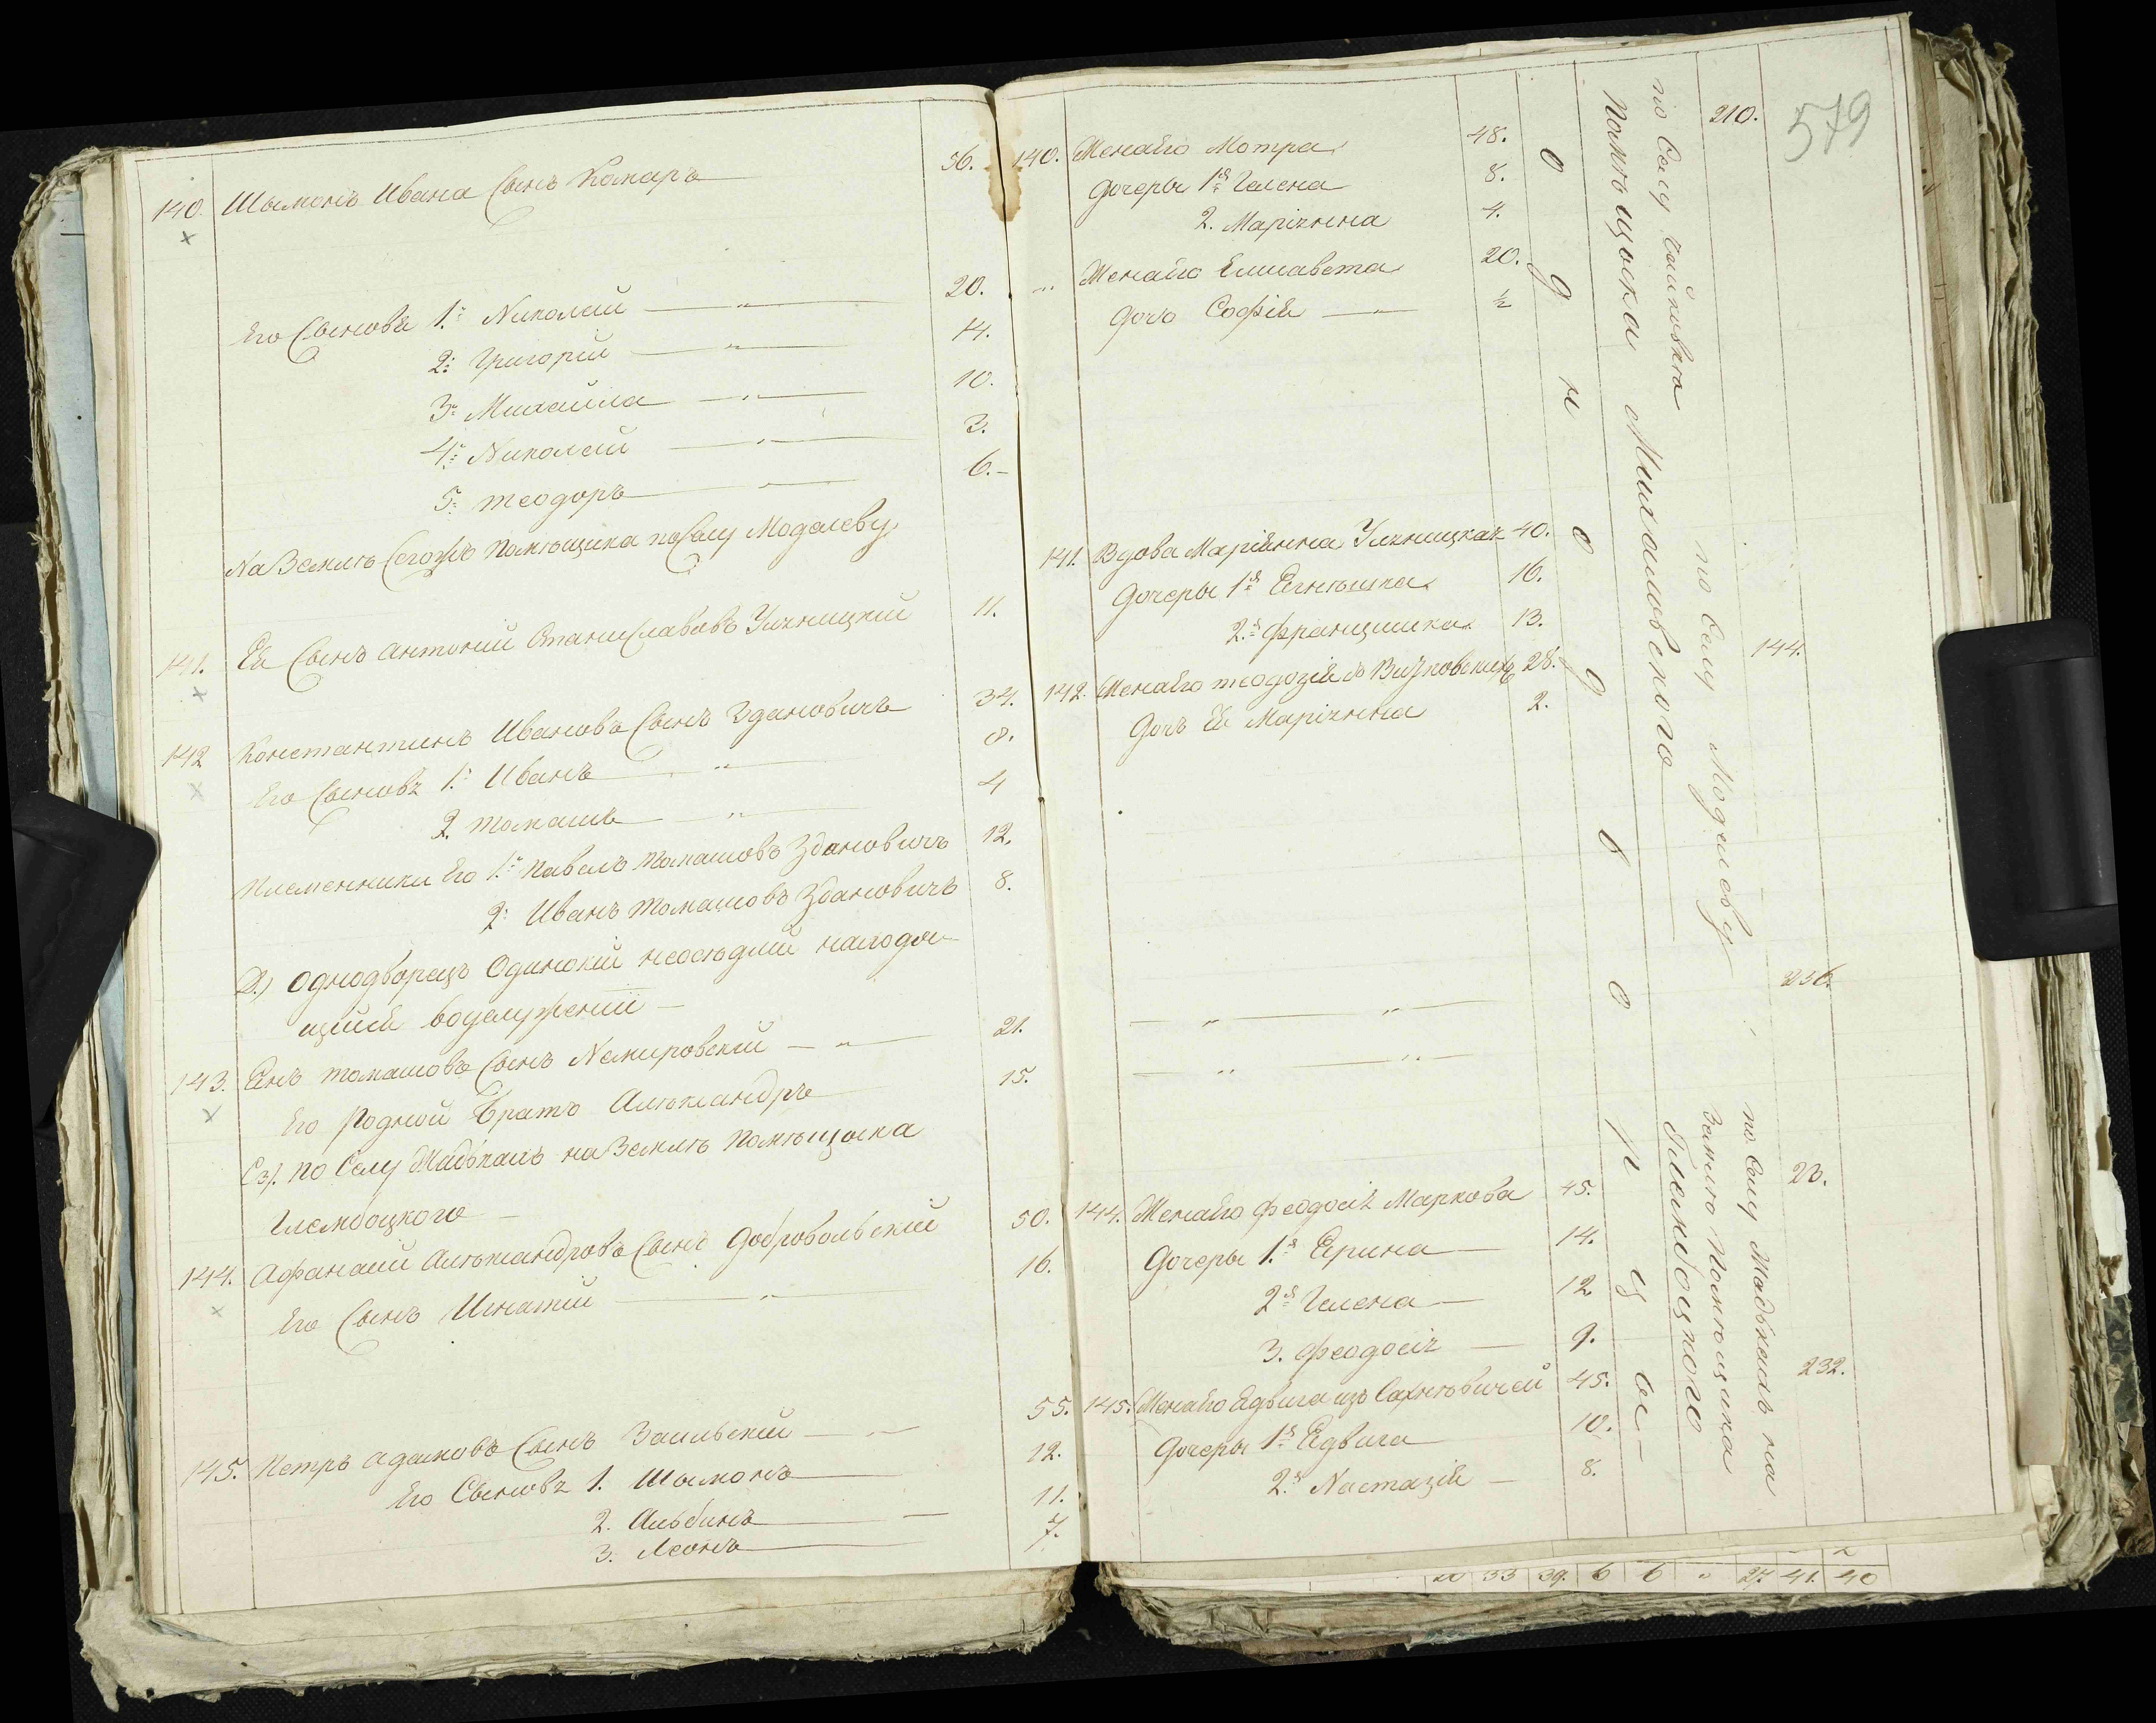 140. Шымонъ Ивана Сынъ Комаръ 56.
Его Сыновья 1. Николай 20.
2. Григорій 14.
3. Михайла 10.
4. Николай 3.
5. Теодоръ 6.
На Землѣ Сегожъ Помѣщика по Селу Моделеву
141. Ея Сынъ Антоній Станиславовъ 11.
142 Константинъ Ивановъ Сынъ Здановичъ 34.
Его Сыновя 1. Иванъ 8.
2. Томашъ 4
Племенники Его 1. Павелъ Томашовъ Здановичъ 12.
2. Иванъ Томашовъ Здановичъ 8.
Однодворецъ Одинокій неосѣдлый находя
щійся вуслуженіи
143. Янъ Томашовъ Сынъ Немировскій 21.
Его Родной Братъ Алѣксандръ 15.
по Селу на Землѣ Помѣщика
Глембоцкого
144. Афанасій Алѣксандровъ Сынъ Добровольскій 50.
Его Сынъ Игнатій 16.
145. Петръ Адамовъ Сынъ 55.
Его Сыновя 1. Шымонъ 12.
2. Альбинъ 11.
3. Леонъ 7.
579
140. Жена Его Мотра 48.
Дочеры 1я Галена 8.
2. Маріянна 4.
" Жена Его Елисавета 20.
Дочь Софія ½
141. Вдова Маріянна 40.
Дочеры 1я Ягнѣшка 16.
2я Францишка 13.
142. Жена Его Теодозія 28.
Дочь Ея Маріянна 2.
144. Жена Его Феодосія Маркова 45.
Дочеры 1я Ярина 14.
2я Галена 12
3. Феодосія 9.
145. Жена Его Ядвига изъ 45.
Дочеры 1я Ядвига 10.
2я Настазія 8.
Однодворцы
Помѣщика Михаловского
по Селу
210.
по Селу Моделеву
144.
236.
23.
по Селу на
Землѣ Помѣщика
Глембоцкого
232.
20 33 39. 6 6 " 27. 41. 40